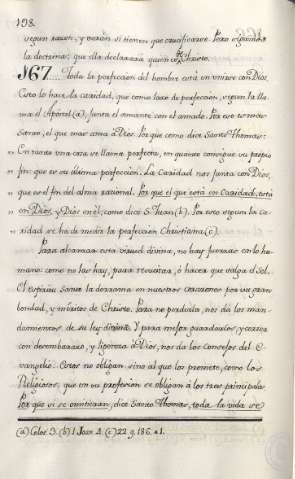 198.
segun razon, y verán si tienen que crucificarse. Pero oygamos
la doctrina: que ella declarará quien es Christo.
167.... Toda la perfeccion del hombre está en unirse con Dios.
Esto lo hace la caridad, que como lazo de perfeccion, segun la lla-
ma el Apóstol (a), junta el amante con el amado. Por eso
el que amar a Dios. Porque como dice Santo Thomas:
En tanto una cosa se llama perfecta, en quanto consigue su propio
fin: que es su ultima perfeccion. La Caridad nos junta con Dios,
que es el fin del alma racional. Porque el que está en Caridad, está
en Dios, y Dios en él: como dice S. Juan (b). Por esto segun la ca-
ridad se ha de medir la perfeccion Christiana (c).
Para alcanzar esta virtud divina, no hay fuerzas en lo hu-
mano: como no las hay, para resucitar, ó hacer que salga el Sol.
El espiritu Santo la derrama en nuestros corazones por su gran
bondad, y meritos de Christo. Para no perderla, nos da los man-
damientos de su ley divina. Y para mejor guardarlos, y correr
con desembarazo, y ligereza á Dios, nos da los consejos del e-
vangelio. Estos no obligan sino al que los promete, como los
Religiosos, que en su profesion se obligan á los tres principales.
Porque si se omitieran, dice Santo Thomas, toda la vida se
(a) Colos. 3. (b) 1 Joan 4. (c) 22. q. 186. a 1.